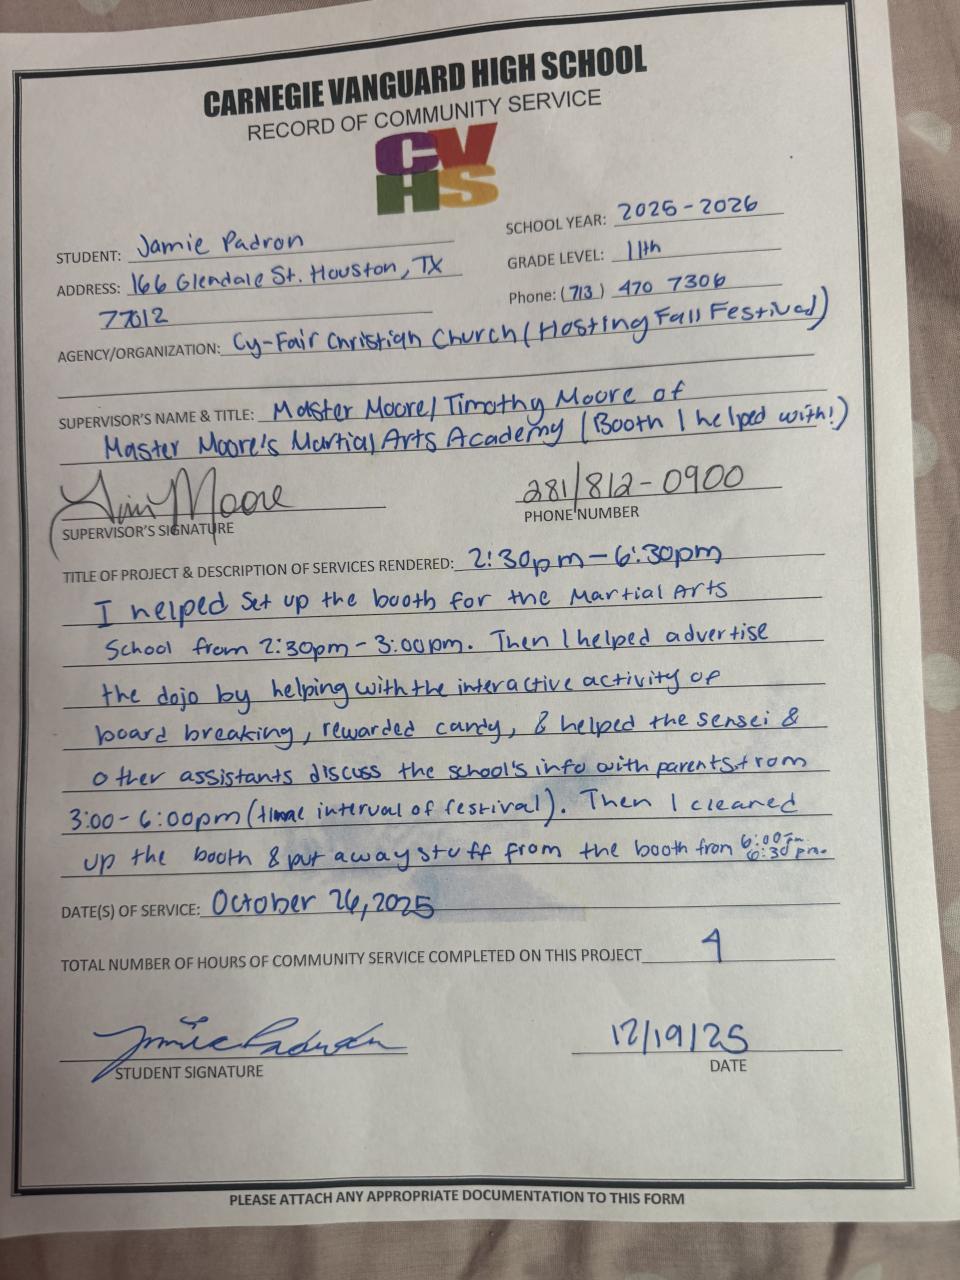 CARNEGIE VANGUARD HIGH SCHOOL
RECORD OF COMMUNITY SERVICE
CV
HS
SCHOOL YEAR: 2025-2026
STUDENT: Jamie Padron
GRADE LEVEL: 11th
ADDRESS: 166 Glendale St. Houston, TX
Phone: (713) 470 7306
77012
AGENCY/ORGANIZATION: Cy-Fair Christian Church (Hosting Fall Festival)
SUPERVISOR'S NAME & TITLE: Master Moore/Timothy Moore of
Master Moore's Martial Arts Academy (Booth I helped with!)
Tim Moore
281/812-0900
SUPERVISOR'S SIGNATURE
PHONE NUMBER
TITLE OF PROJECT & DESCRIPTION OF SERVICES RENDERED: 2:30pm-6:30pm
I helped set up the booth for the Martial Arts
School from 2:30pm-3:00pm. Then I helped advertise
the dojo by helping with the interactive activity of
board breaking, rewarded candy, & helped the sensei &
other assistants discuss the school's info with parents from
3:00-6:00pm (time interval of festival). Then I cleaned
up the booth & put away stuff from the booth from 6:00pm-
6:30pm.
DATE(S) OF SERVICE: October 26, 2025
TOTAL NUMBER OF HOURS OF COMMUNITY SERVICE COMPLETED ON THIS PROJECT 4
Jamie Padron
12/19/25
STUDENT SIGNATURE
DATE
PLEASE ATTACH ANY APPROPRIATE DOCUMENTATION TO THIS FORM